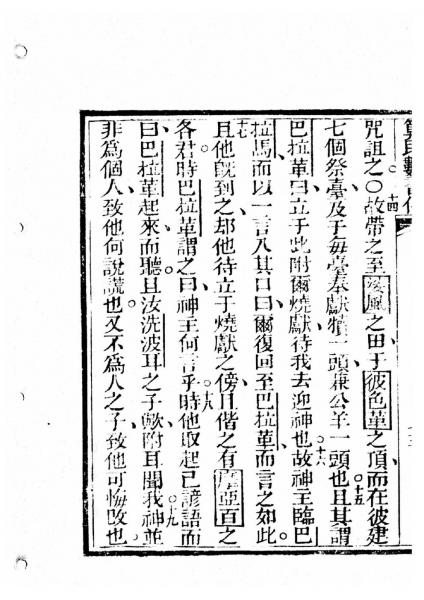 算民數
咒詛之○十四故帶之至風之田于彼色革之頂而在彼建
七個祭臺及于每臺奉獻犢一頭兼公羊一頭也十五且其謂
巴拉革曰立乎此附爾燒獻待我去迎神也十六故神主臨巴
拉馬而以一言入其口曰爾復回至巴拉革而言之如此
十七且他既到之却他待立于燒獻之傍且偕之有摩亞百之
各君時巴拉革謂之曰神主何言乎十八時他取起己諺語而
曰巴拉革起來而聽且汝洗波耳之子歟附耳聞我十九神並
非為個人致他何說謊也又不為人之子致他可悔改也